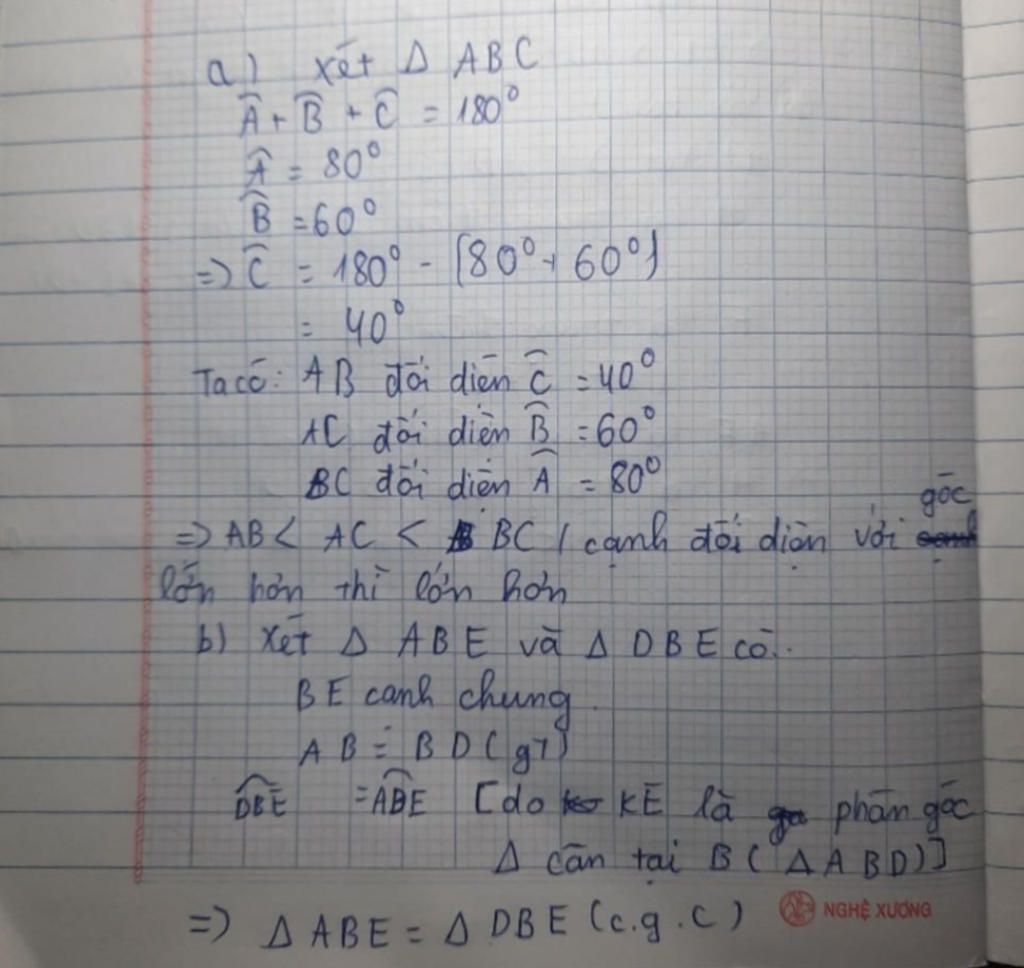 a) Xét Δ ABC
Â + B̂ + Ĉ = 180°
Â = 80°
B̂ = 60°
=> Ĉ = 180° - (80° + 60°)
= 40°
Ta có: AB đối diện Ĉ = 40°
AC đối diện B̂ = 60°
BC đối diện Â = 80°
=> AB < AC < BC ( cạnh đối diện với góc
lớn hơn thì lớn hơn
b) Xét Δ ABE và Δ DBE có:
BE cạnh chung
AB = BD (gt)
DBE = ABE [do KE là phân góc
Δ cân tại B (ΔABD)]
=> Δ ABE = Δ DBE (c.g.c)
NGHỆ XƯƠNG